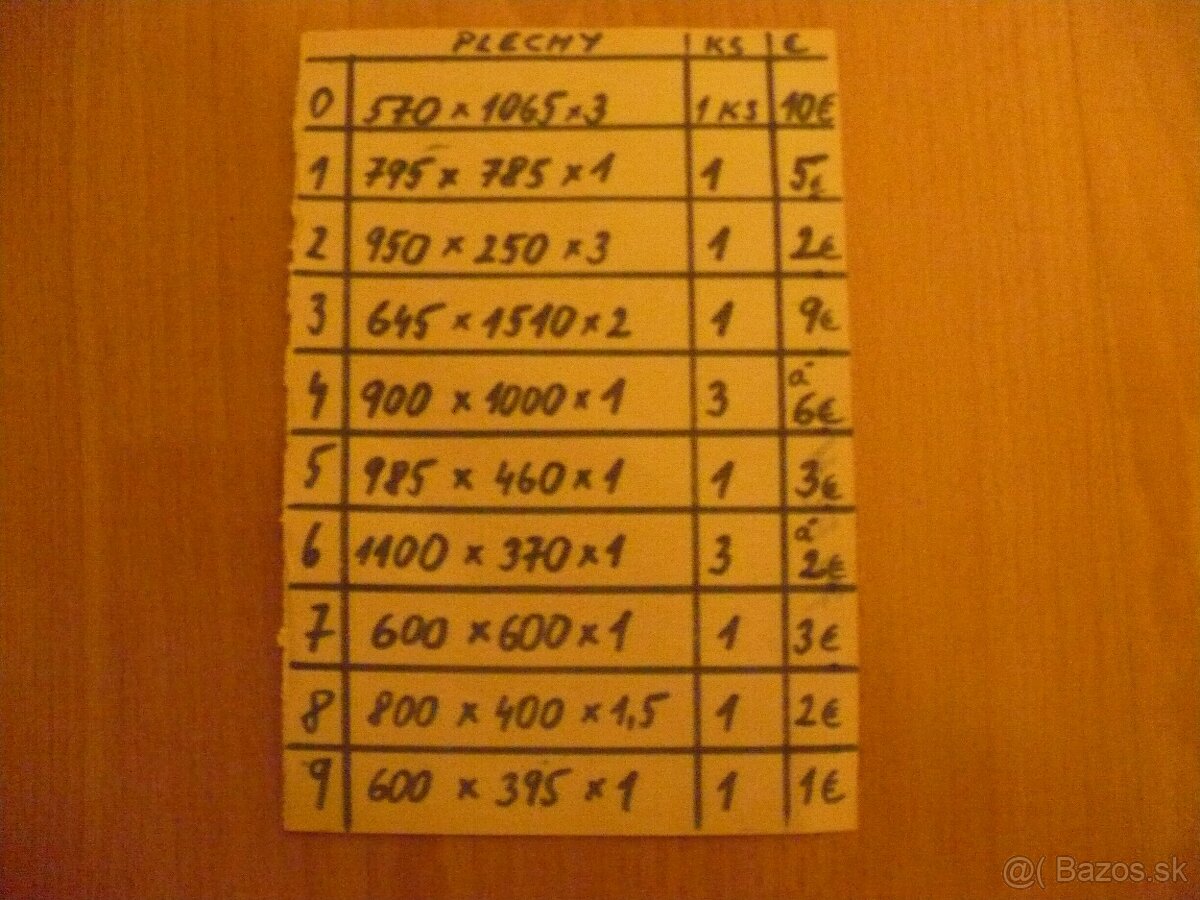 PLECHY KS €
0 570 x 1065 x 3 1 KS 10€
1 795 x 785 x 1 1 5€
2 950 x 250 x 3 1 2€
3 645 x 1510 x 2 1 9€
4 900 x 1000 x 1 3 á 6€
5 985 x 460 x 1 1 3€
6 1100 x 370 x 1 3 á 2€
7 600 x 600 x 1 1 3€
8 800 x 400 x 1,5 1 2€
9 600 x 395 x 1 1 1€
@( Bazos.sk